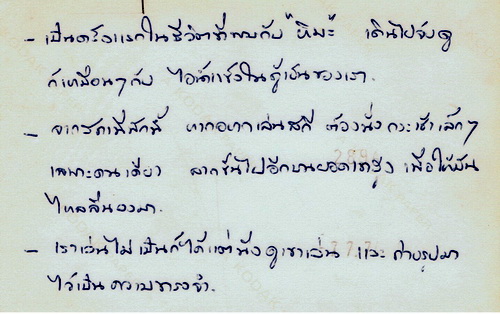 - เป็นครั้งแรกในชีวิตที่พบกับ "หิมะ" เดินไปจับดู
ก็เหมือนๆกับ ไอน้ำแข็งในตู้เย็นของเรา.
- จากรีดเพี่สักนี้ หากอยากเล่นสกี ต้องนั่งกระเช้าเล็กๆ
เฉพาะคนเดียว ลากขึ้นไปอีกบนยอดเขาสูง เพื่อให้มัน
ไหลลื่นลงมา.
- เราเล่นไม่เป็นก็ได้แต่นั่งดูเขาเล่น และ ถ่ายรูปมา
ไว้เป็นความทรงจำ.